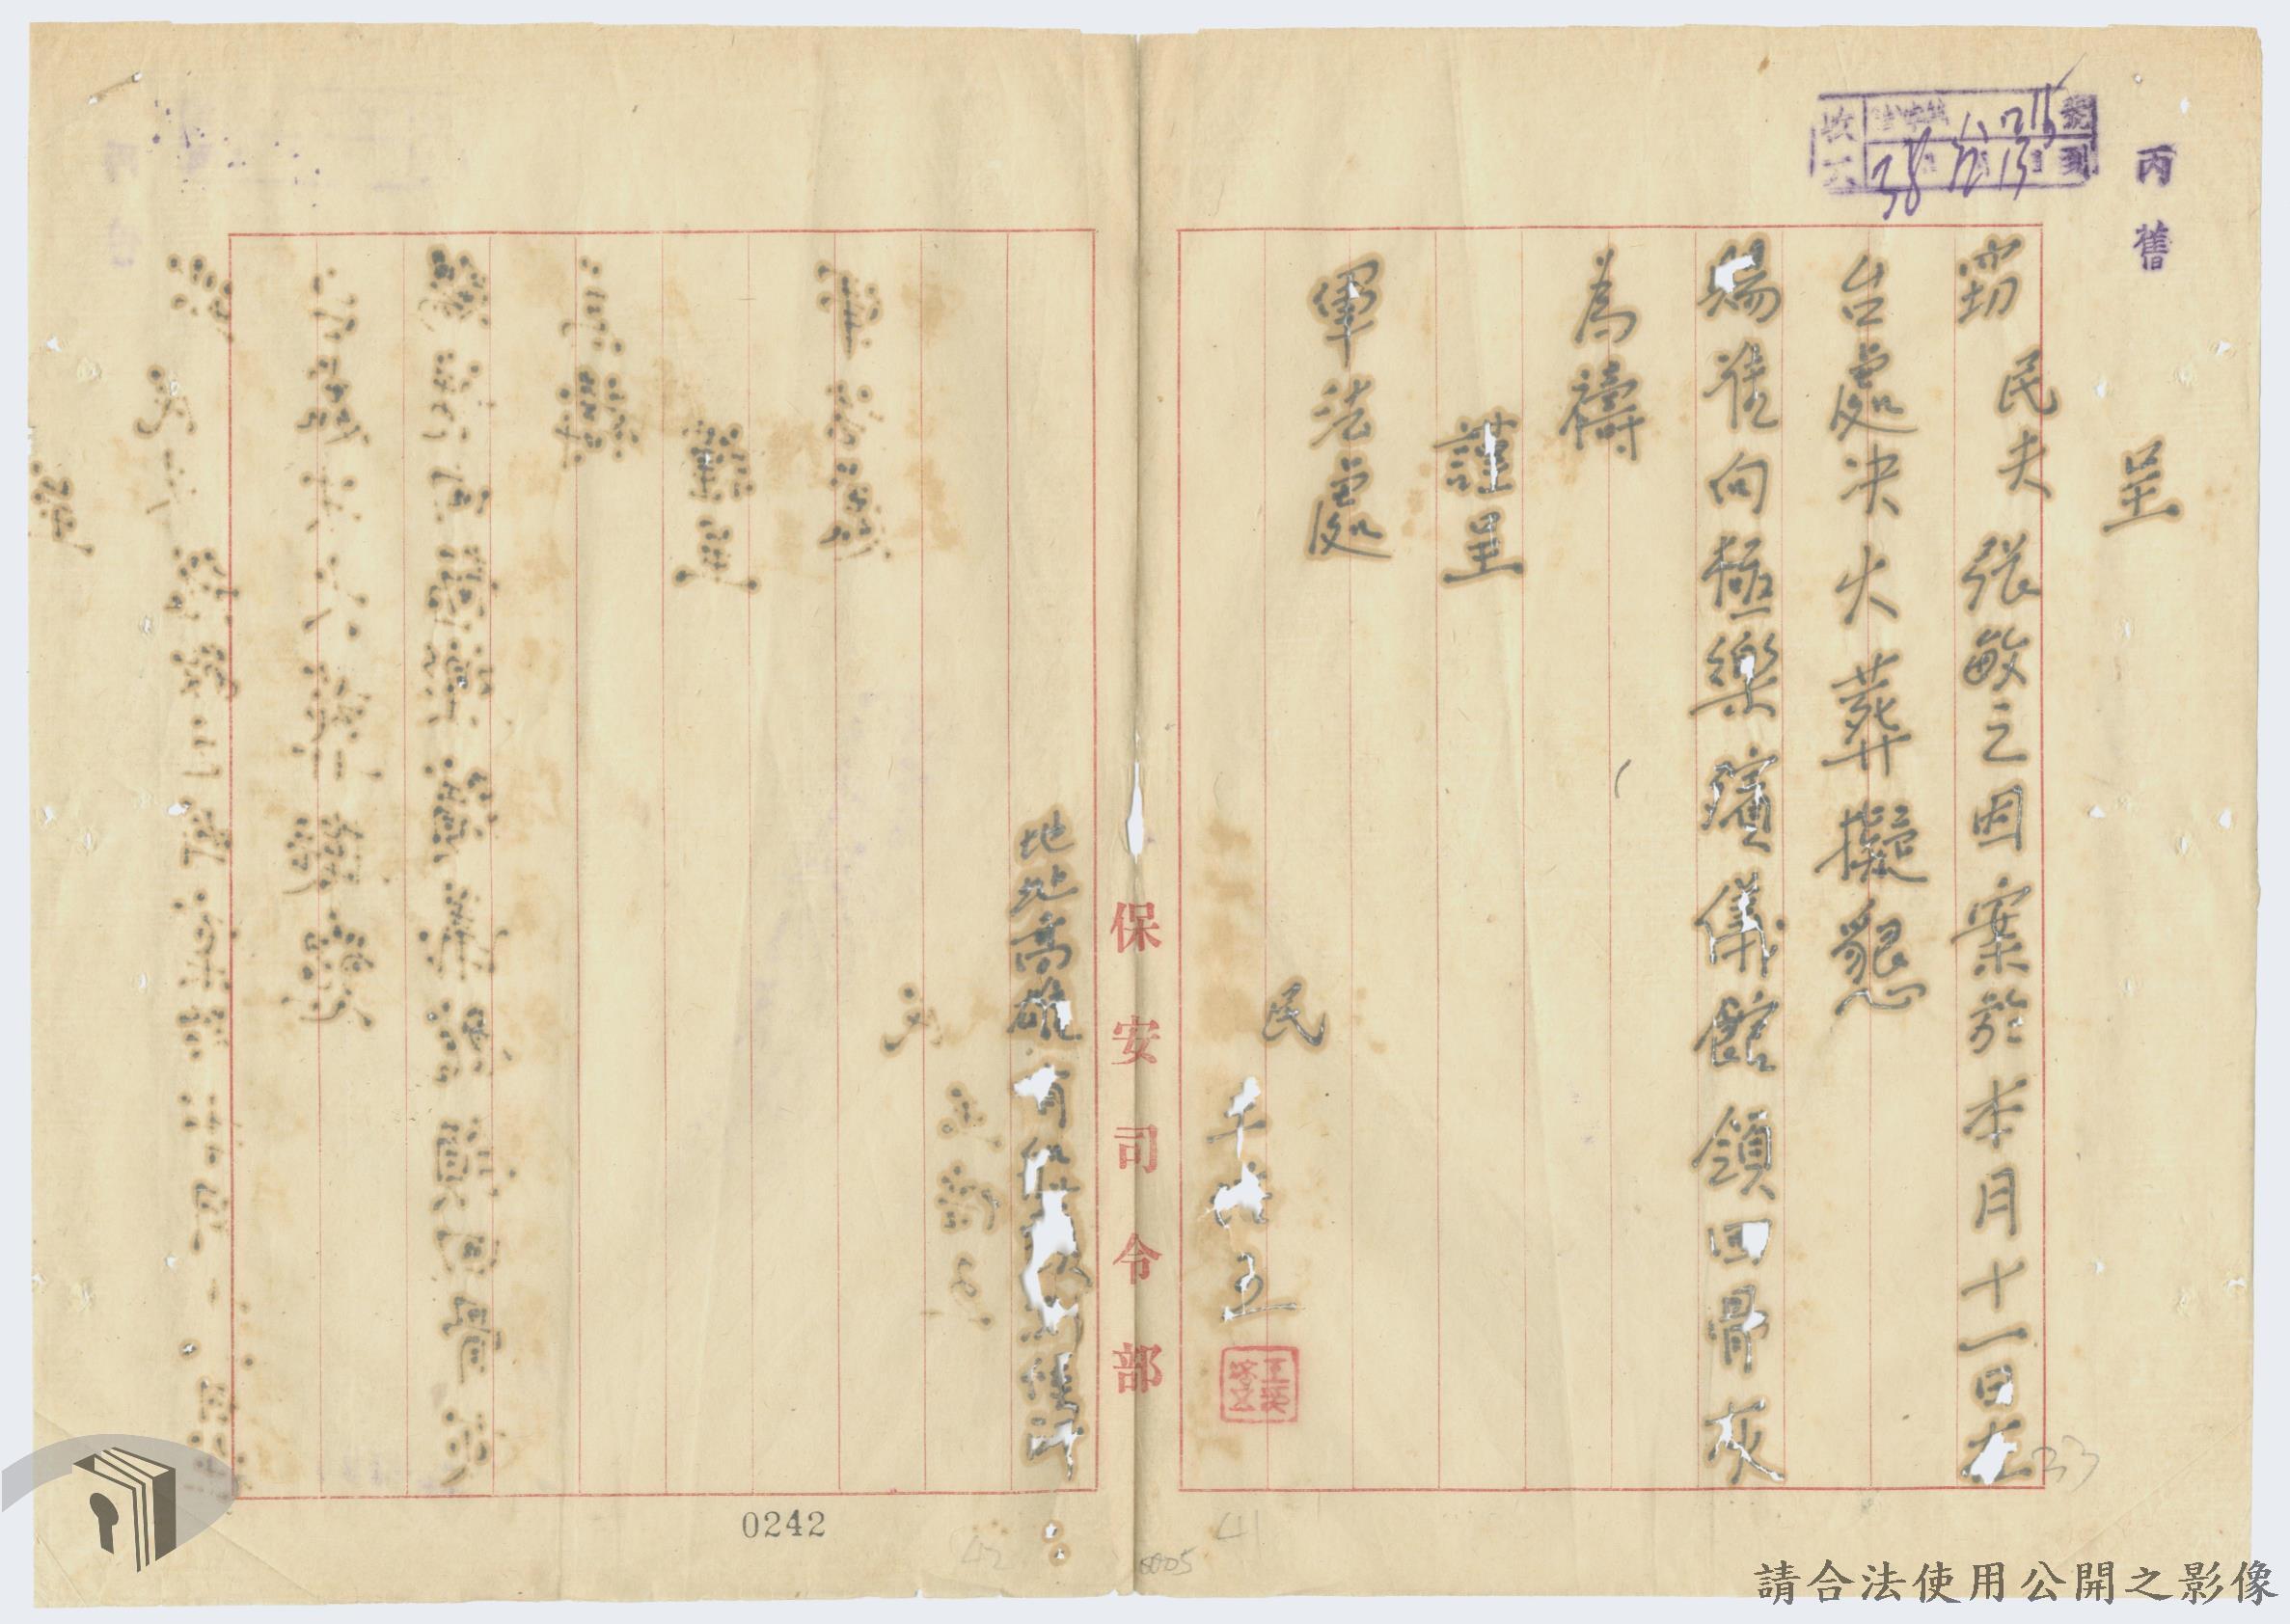 丙
舊
呈
竊民夫張敏之因案於本月十一日在
台處決火葬擬懇
賜准向極樂殯儀館領回骨灰
為禱
謹呈
軍法處
民
王培五
保安司令部
地址高雄
0242
請合法使用公開之影像